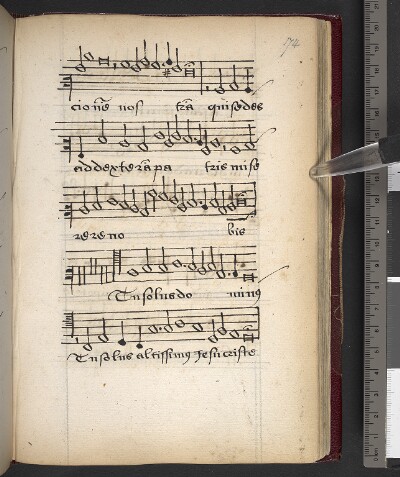 74
cionẽ nos trã qui sedes
ad dexterã pa tris mise
rere no bis
Tu solus do minus
Tu solus altissimus Jesu criste